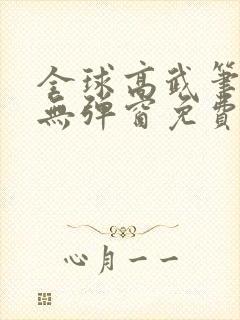 全球高武筆
無彈窗免費
心月一一